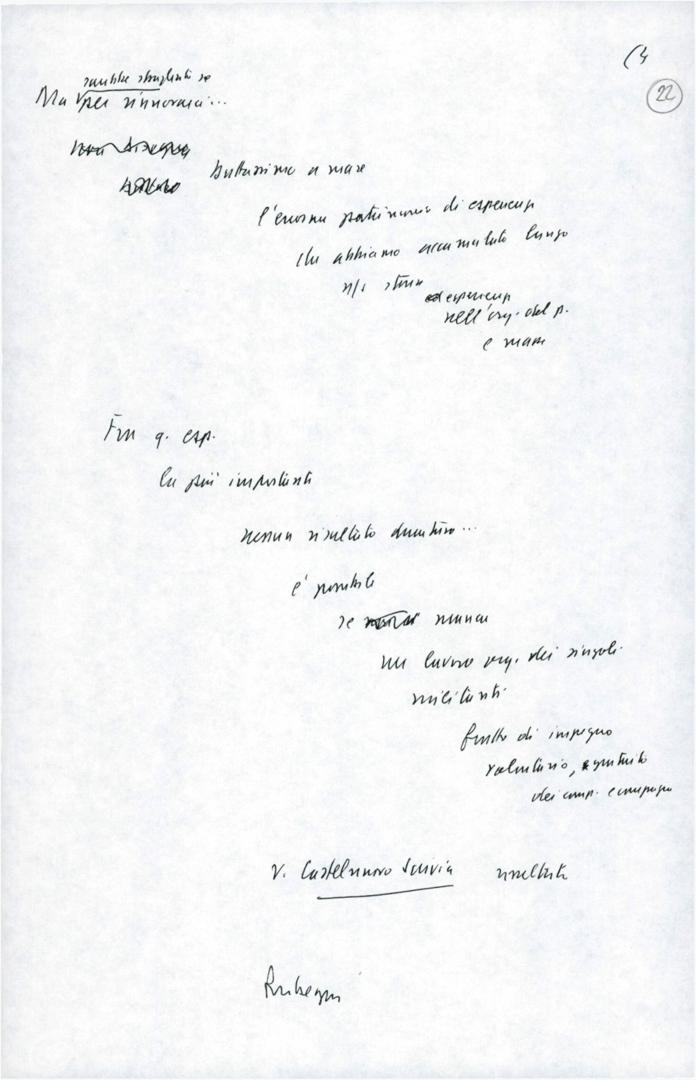 (4
22
sarebbe sbagliato se
Ma per rinnovarci...
buttassimo a mare
l'enorme patrimonio di esperienze
che abbiamo accumulato lungo
n/s storia
esperienze
nell'org. del p.
e mass
Fra q. esp.
la più importante
nessun risultato duraturo...
è possibile
se manca
un lavoro org. dei singoli
militanti
frutto di impegno
volontario, gratuito
dei comp. e compagne
V. Castelnuovo Scrivia risultato